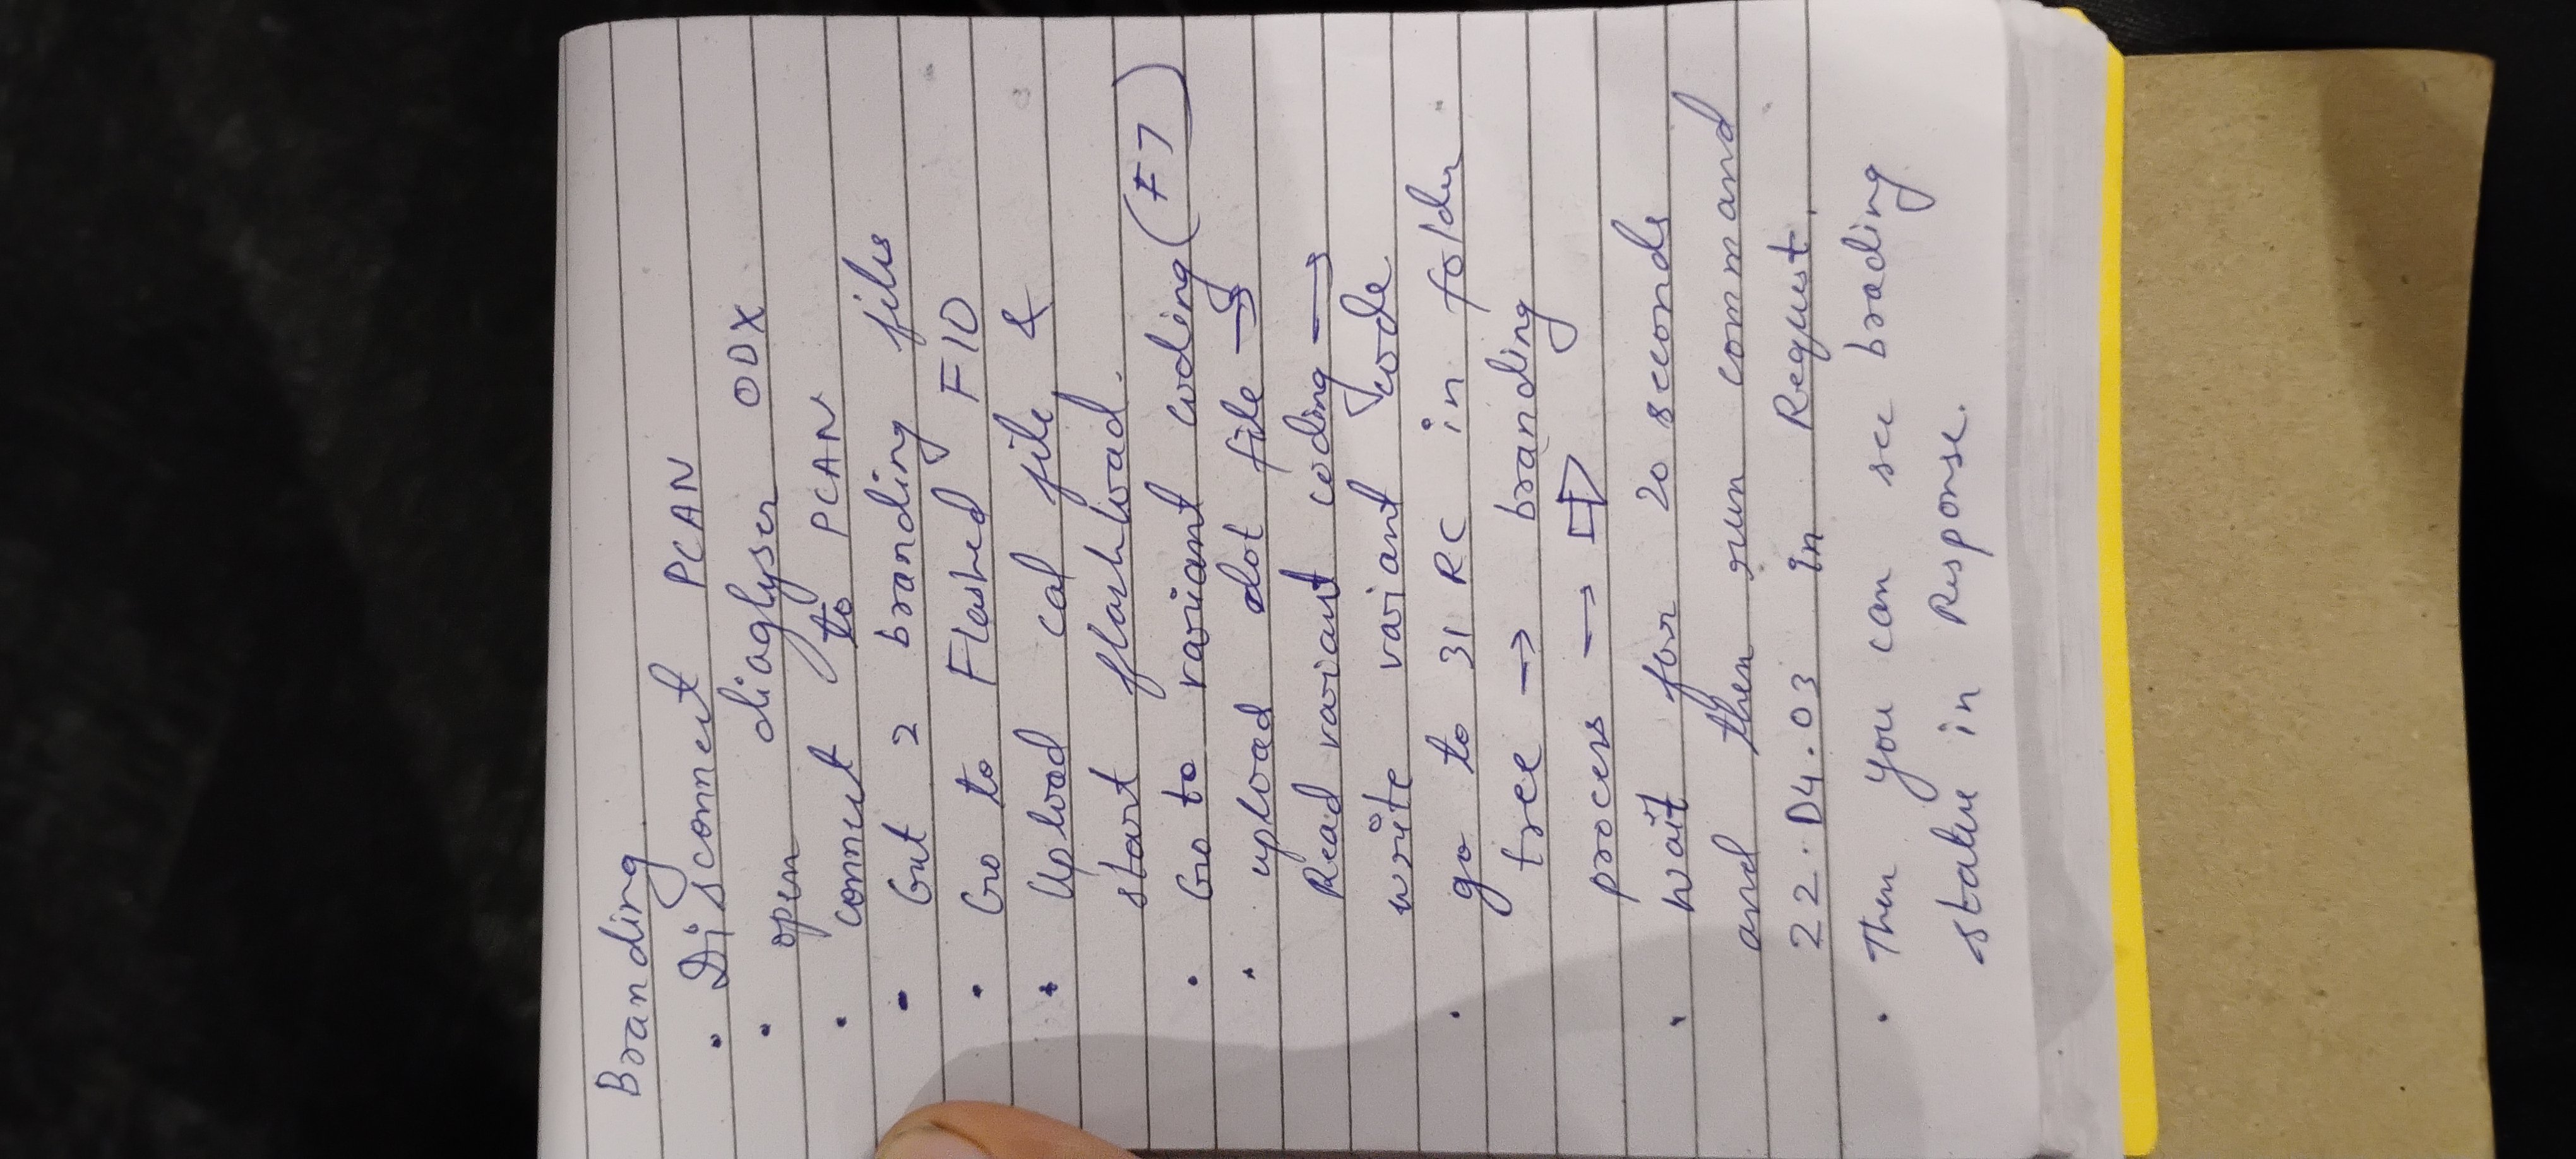 Branding
• Disconnect PCAN
• open diaglyser ODX
• connect to PCAN
- Get 2 branding files
• Go to Flashed F10
• Upload cal file, &
start flashload.
• Go to variant coding (F7)
• upload dot file →
Read variant coding →
write variant code
• go to 31 RC in folder
tree → branding
process → ⇨
• wait for 20 seconds
and then run command
22.D4.03 in Request.
• Then you can see brading
statue in Response.